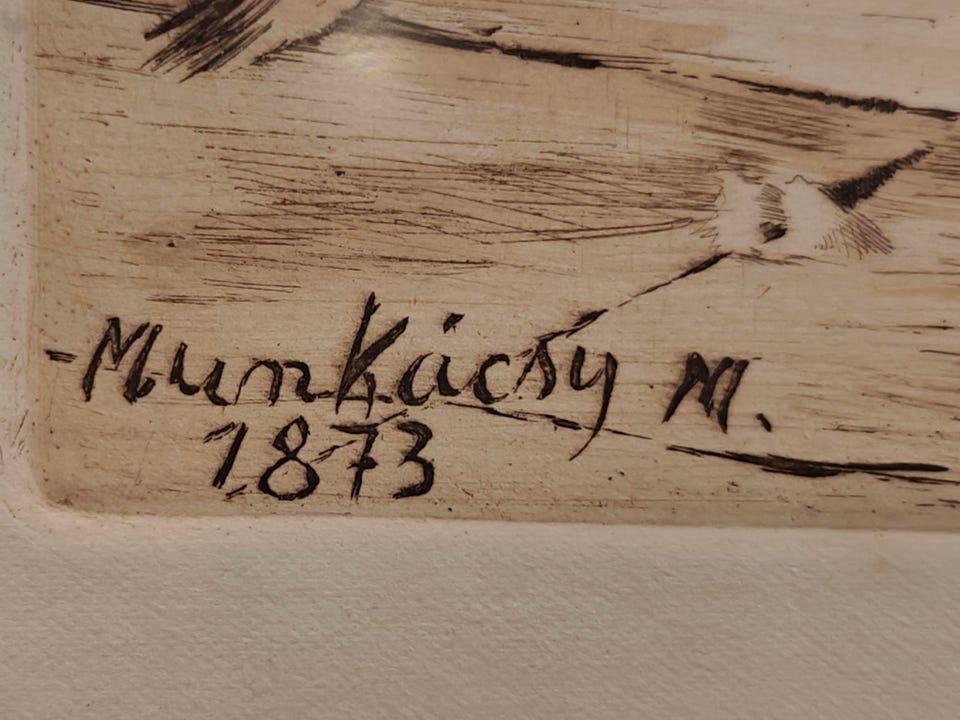 Munkácsy M.
1873